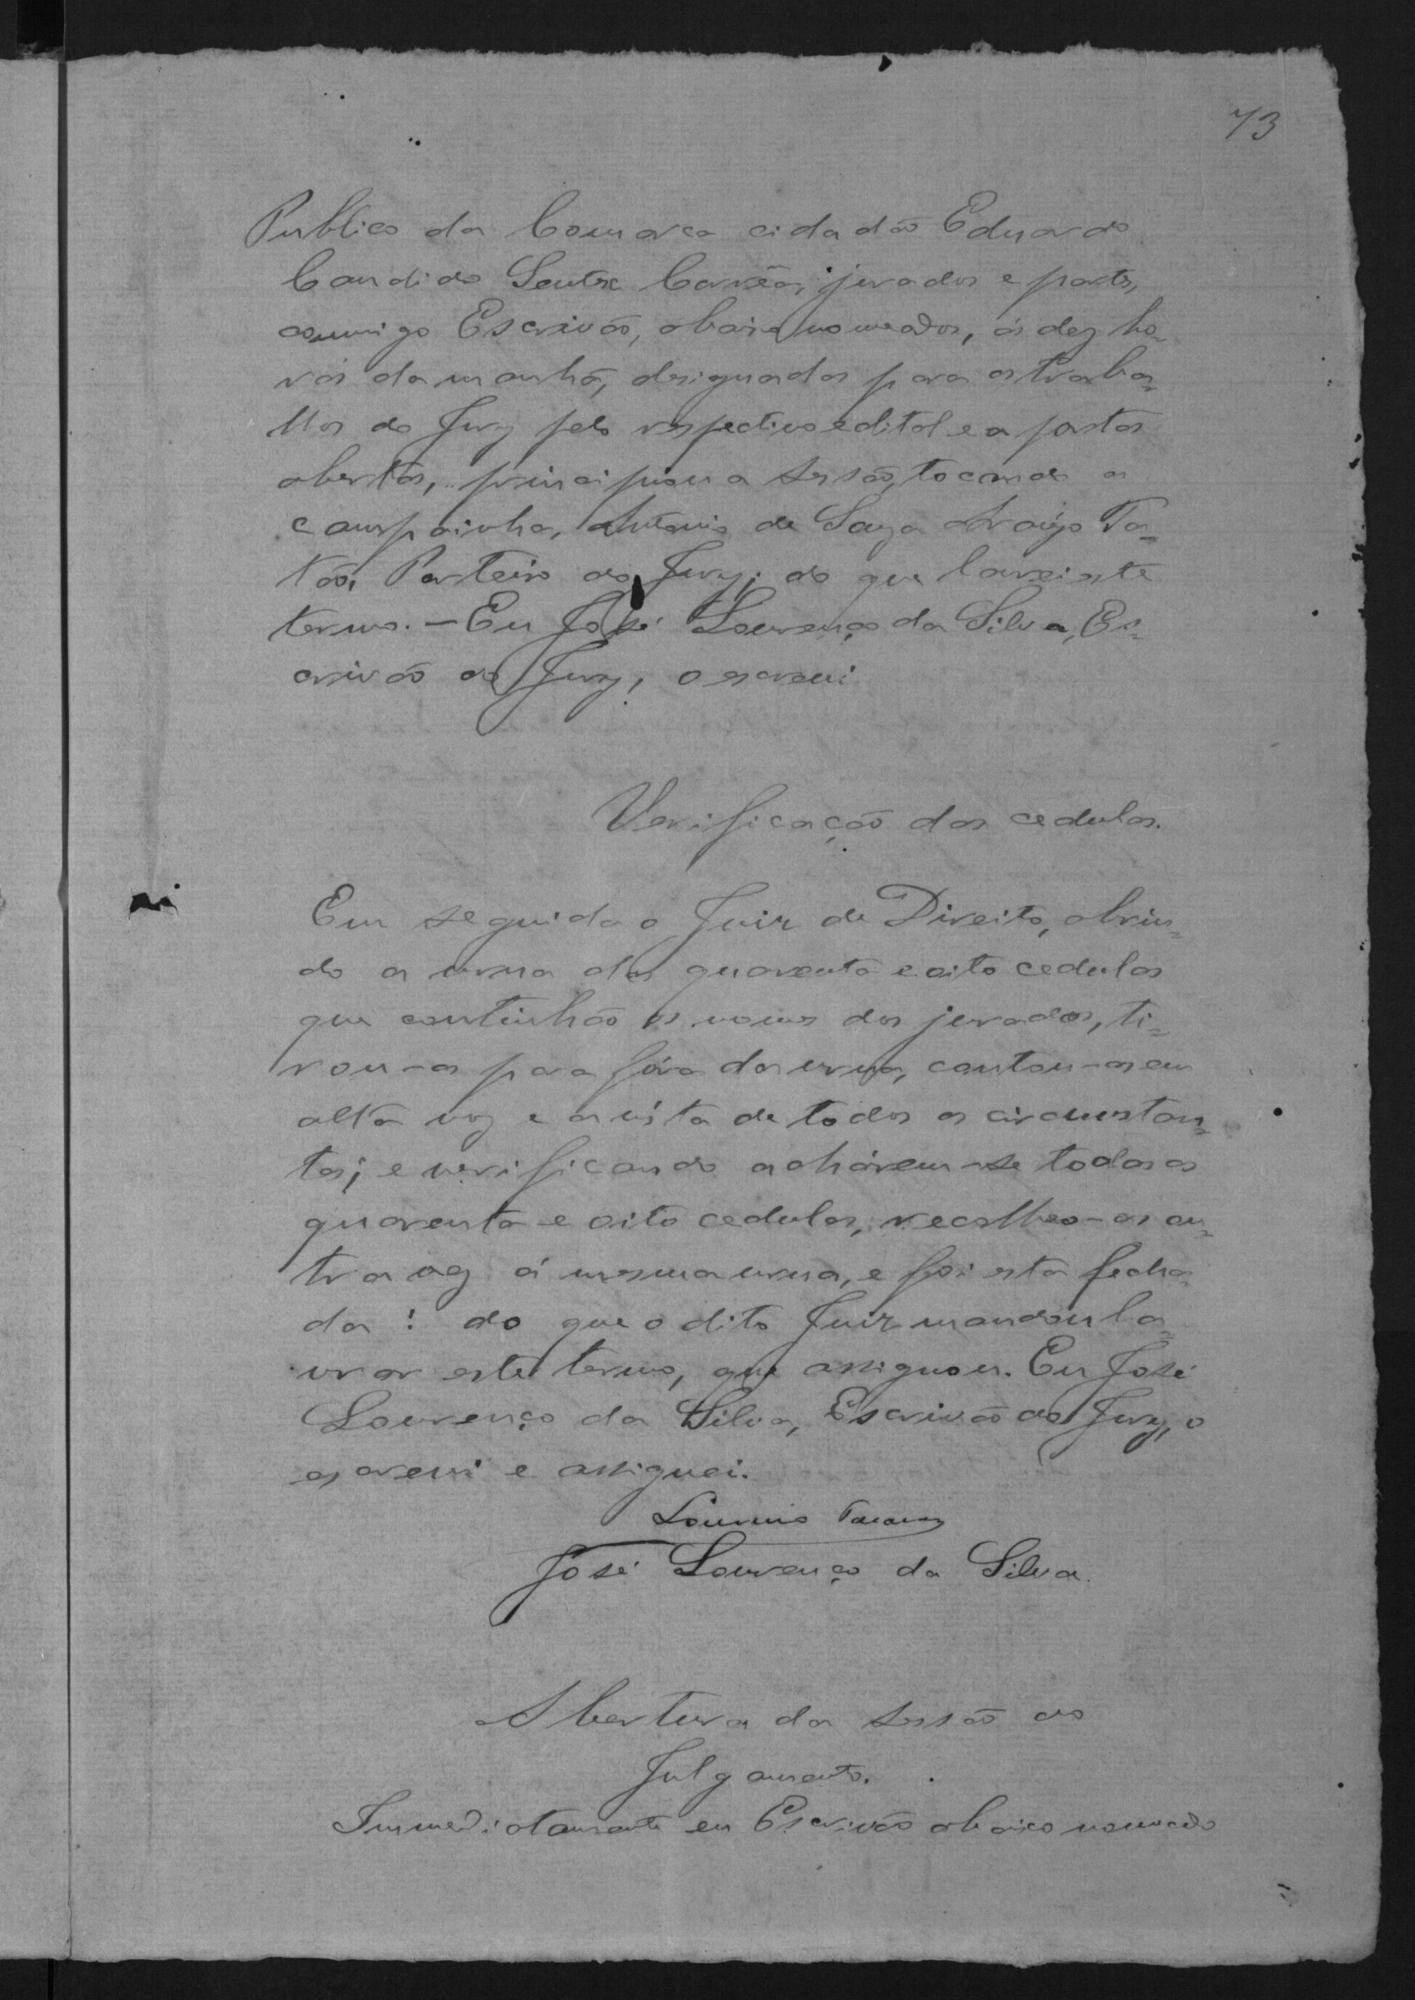 73
Publico da Comarca cidadão Eduardo
Candido Carrão, jurados e partes,
comigo Escrivão, abaixo nomeados, ás dez ho-
ras da manhã, designadas para os traba-
lhos do Jury pelo respectivo edital e a portas
abertas, principiou a sessão, tocando a
campainha, Antonio de Araújo Ta-
tão, Porteiro do Jury; do que lavrei este
termo. — Eu José Lourenço da Silva, Es-
crivão do Jury, o escrevi
Verificação das cedulas.
Em seguida o Juiz de Direito, abrin-
do a urna das quarenta e oito cedulas
que continhão os nomes dos jurados, ti-
rou-as para fóra da urna, contou-as em
alta voz e a vista de todos os circumstan-
tes; e verificando acharem-se todas as
quarenta e oito cedulas, recolheo-as ou-
tra vez á mesma urna, e foi esta fecha-
da: do que o dito Juiz mandou la-
vrar este termo, que assignou. Eu José
Lourenço da Silva, Escrivão do Jury, o
escrevi e assignei.
José Lourenço da Silva.
Abertura da sessão do
Julgamento.
Immediatamente eu Escrivão abaixo nomeado